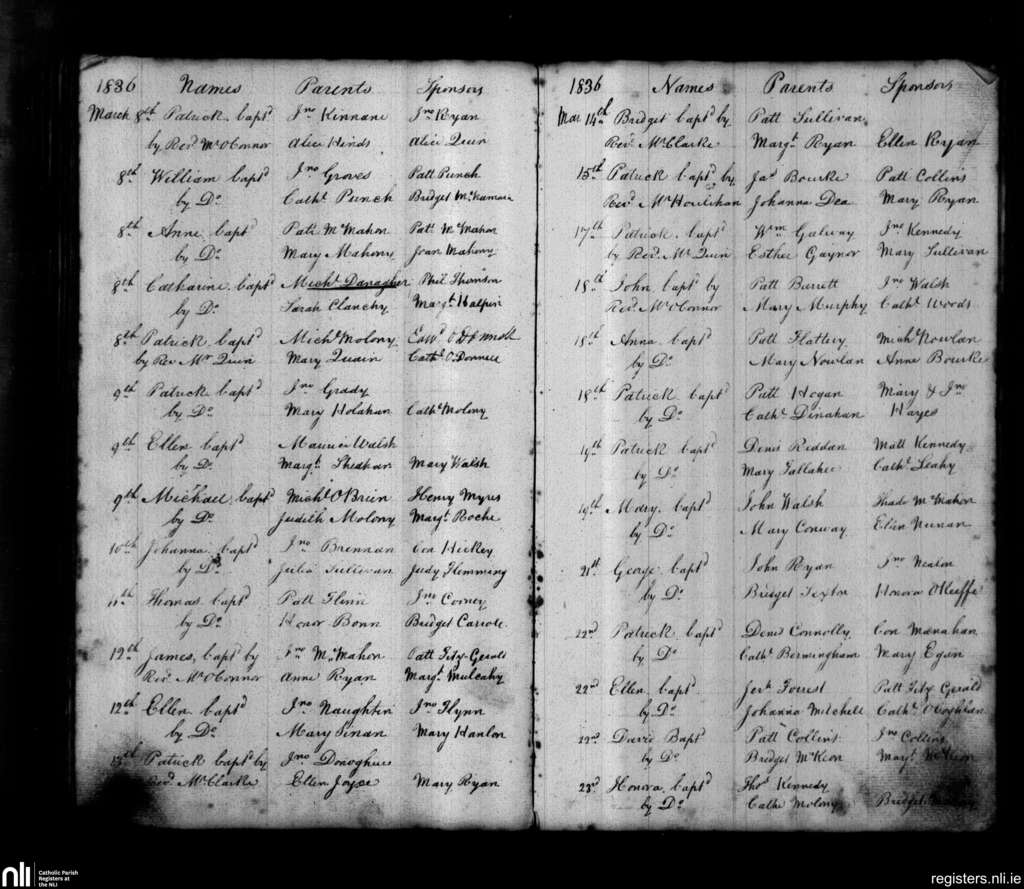 1836 Names Parents Sponsors
March 8th Patrick bapt'd Jno Kinnane Jno Ryan
by Revd Mr O'Connor Alice Hinds Alice Quin
8th William bapt'd Jno Groves Patt Punch
by Do. Cathe Punch Bridget McNamara
8th Anne bapt'd Patt McMahon Patt McMahon
by Do. Mary Mahony Joan Mahony
8th Catharine bapt'd Michl Danagher Phil Thomson
by Do. Sarah Clanchy Margt Halpin
8th Patrick bapt'd Michl Molony Edwd O'Donnell
by Rev Mr Quin Mary Quain Cathe O'Donnell
9th Patrick bapt'd Jno Grady
by Do. Mary Holahan Cathe Molony
9th Ellen bapt'd Maurice Walsh
by Do. Margt Sheehan Mary Walsh
9th Michael bapt'd Michl O'Brien Henry Myrs
by Do. Judith Molony Margt Roche
10th Johanna bapt'd Jno Brennan Con Hickey
by Do. Julia Sullivan Judy Flemming
11th Thomas bapt'd Patt Flinn Jno Corney
by Do. Honor Bonn Bridget
12th James, bapt'd by Jno McMahon Patt Fitz-Gerald
Revd Mr O'Connor Anne Ryan Margt Mulcahy
12th Ellen bapt'd Jno Naughtin Jno Flynn
by Do. Mary Finan Mary Hanlon
Patrick bapt'd by Jno Donoghue
Revd Mr Clarke Ellen Joyce Mary Ryan
1836 Names Parents Sponsors
Mar 14th Bridget bapt'd by Patt Sullivan
Revd Mr Clarke Margt Ryan Ellen Ryan
15th Patrick bapt'd by Jas Bourke Patt Collins
Revd Mr Houlihan Johanna Dea Mary Ryan
17th Patrick bapt'd Wm Galway Jno Kennedy
by Revd Mr Quin Esther Gaynor Mary Sullivan
18th John, bapt'd by Patt Barrett Jno Walsh
Revd Mr O'Connor Mary Murphy Cathe Woods
18th Anna bapt'd Patt Flattery Michl Nowlan
by Do. Mary Nowlan Anne Bourke
18th Patrick bapt'd Patt Hogan Mary & Jno
by Do. Cathe Dinahan Hayes
19th Patrick bapt'd Denis Riddan Matt Kennedy
by Do. Mary Fallahee Cathe Leahy
19th Mary bapt'd John Walsh Thado McMahon
by Do. Mary Conway Ellen Nunan
21st George bapt'd John Ryan Jno Nealon
by Do. Bridget Sexton Honora O'Keeffe
22nd Patrick bapt'd Denis Connolly Con Manahan
by Do. Cathe Bermingham Mary Egan
22nd Ellen bapt'd Jerh Forrest Patt Fitz Gerald
by Do. Johanna Mitchell Cathe O'Coghlan
22nd David Bapt'd Patt Collins Jno Collins
by Do. Bridget McKeon Margt McKeon
23d Honora bapt'd Thos Kennedy
by Do. Cathe Molony Bridget
nli Catholic Parish
Registers at
the NLI
registers.nli.ie